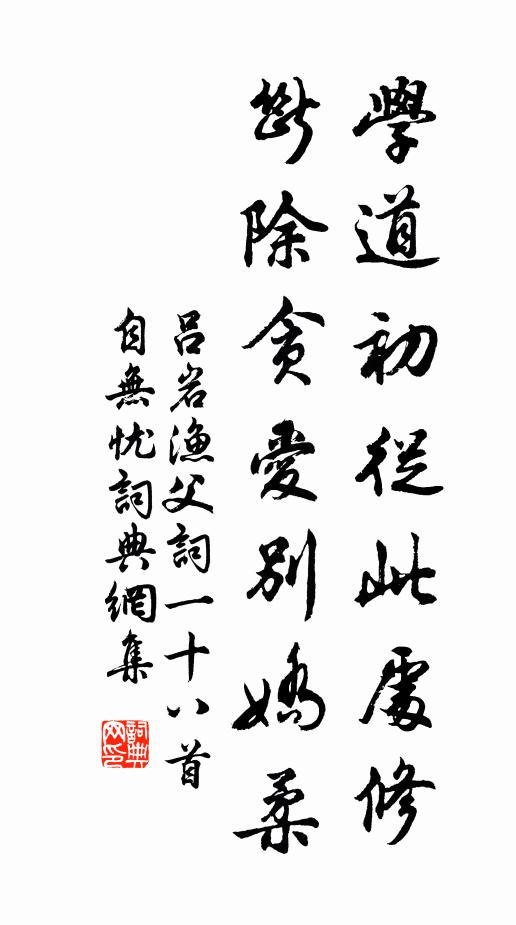 學道初從此處修
斷除貪愛別嬌柔
呂岩漁父詞一十八首
自無忧詞典網集
詞典网印